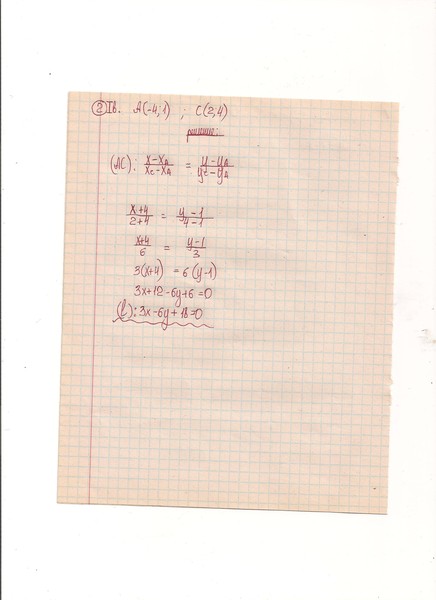 ② Iв. A(-4;1) ; C(2;4)
решение:
(AC): x-x_A/x_C-x_A = y-y_A/y_C-y_A
x+4/2+4 = y-1/4-1
x+4/6 = y-1/3
3(x+4) = 6(y-1)
3x+12-6y+6=0
(l): 3x-6y+18=0